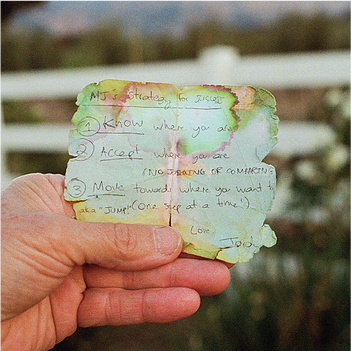 MJ's Strategy for Success
① Know where you are
② Accept where you are
(NO JUDGING OR COMPARING
③ Move towards where you want t
aka "JUMP!" (One step at a time!)
Love